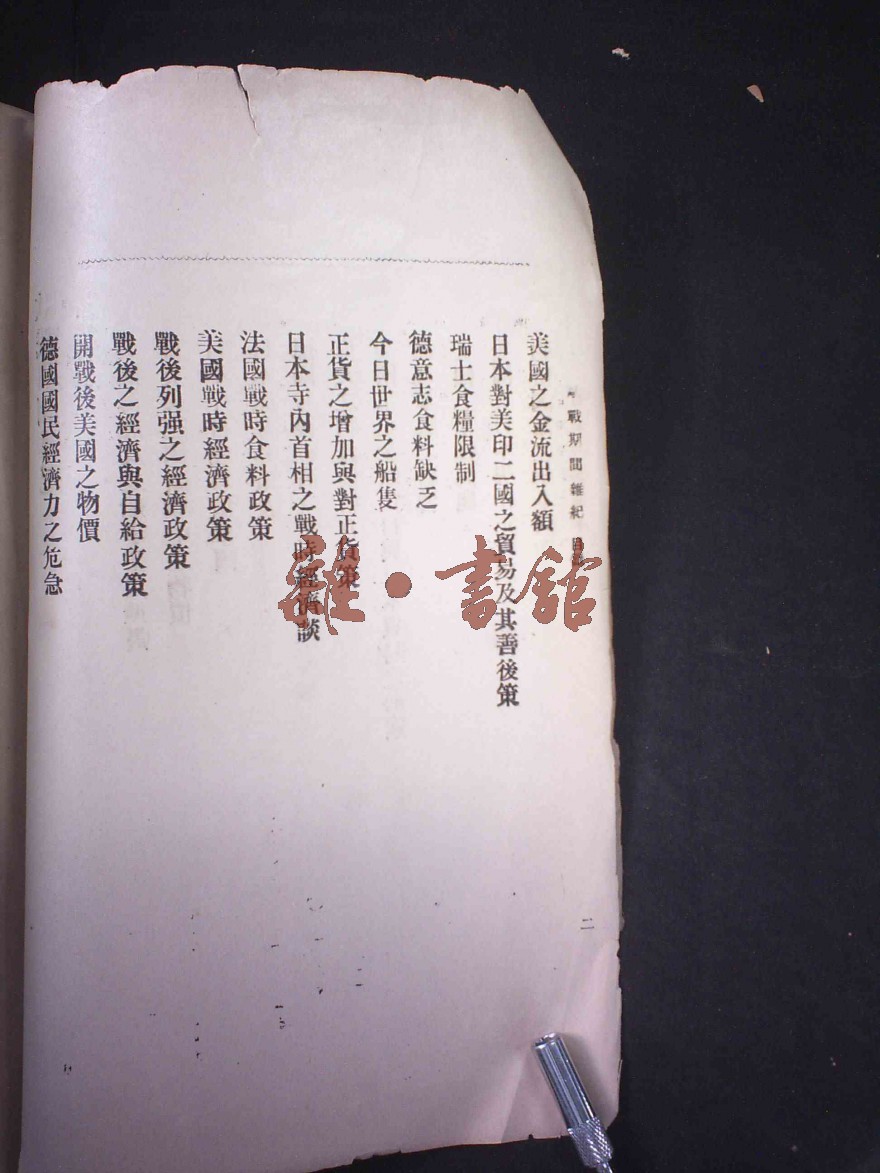 戰期間雜紀 目
美國之金流出入額
日本對美印二國之貿易及其善後策
瑞士食糧限制
德意志食料缺乏
今日世界之船隻
正貨之增加與對正貨策
日本寺內首相之戰時經濟談
法國戰時食料政策
美國戰時經濟政策
戰後列强之經濟政策
戰後之經濟與自給政策
開戰後美國之物價
德國國民經濟力之危急
二
雜·書館